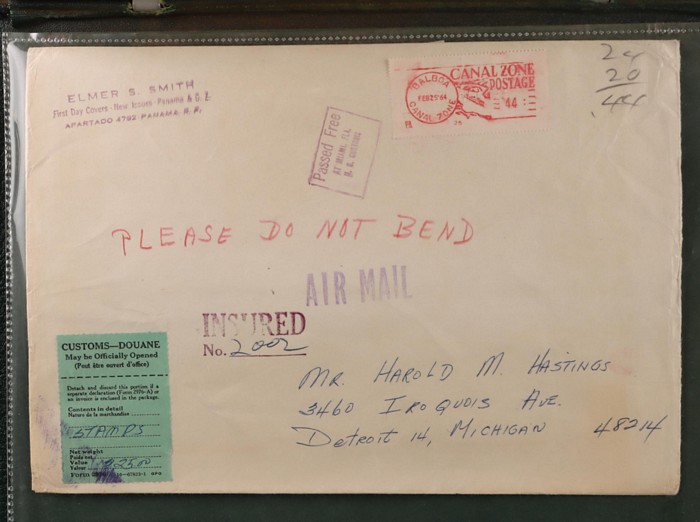 ELMER S. SMITH
First Day Covers - New Issues - Panama & C. Z.
APARTADO 4792 PANAMA, R. P.
CANAL ZONE
POSTAGE
BALBOA
FEB 25 '64
CANAL ZONE
.44
24
20
.44
Passed Free
AT MIAMI, FLA.
U. S. CUSTOMS
PLEASE DO NOT BEND
AIR MAIL
INSURED
No. 2002
CUSTOMS—DOUANE
May be Officially Opened
(Peut être ouvert d'office)
Detach and discard this portion if a
separate declaration (Form 2976-A) or
an invoice is enclosed in the package.
Contents in detail
Nature de la marchandise
STAMPS
Net weight
Poids net
Value
Valeur
25.00
Form
GPO
MR. HAROLD M. HASTINGS
3460 IROQUOIS AVE.
Detroit 14, MICHIGAN 48214